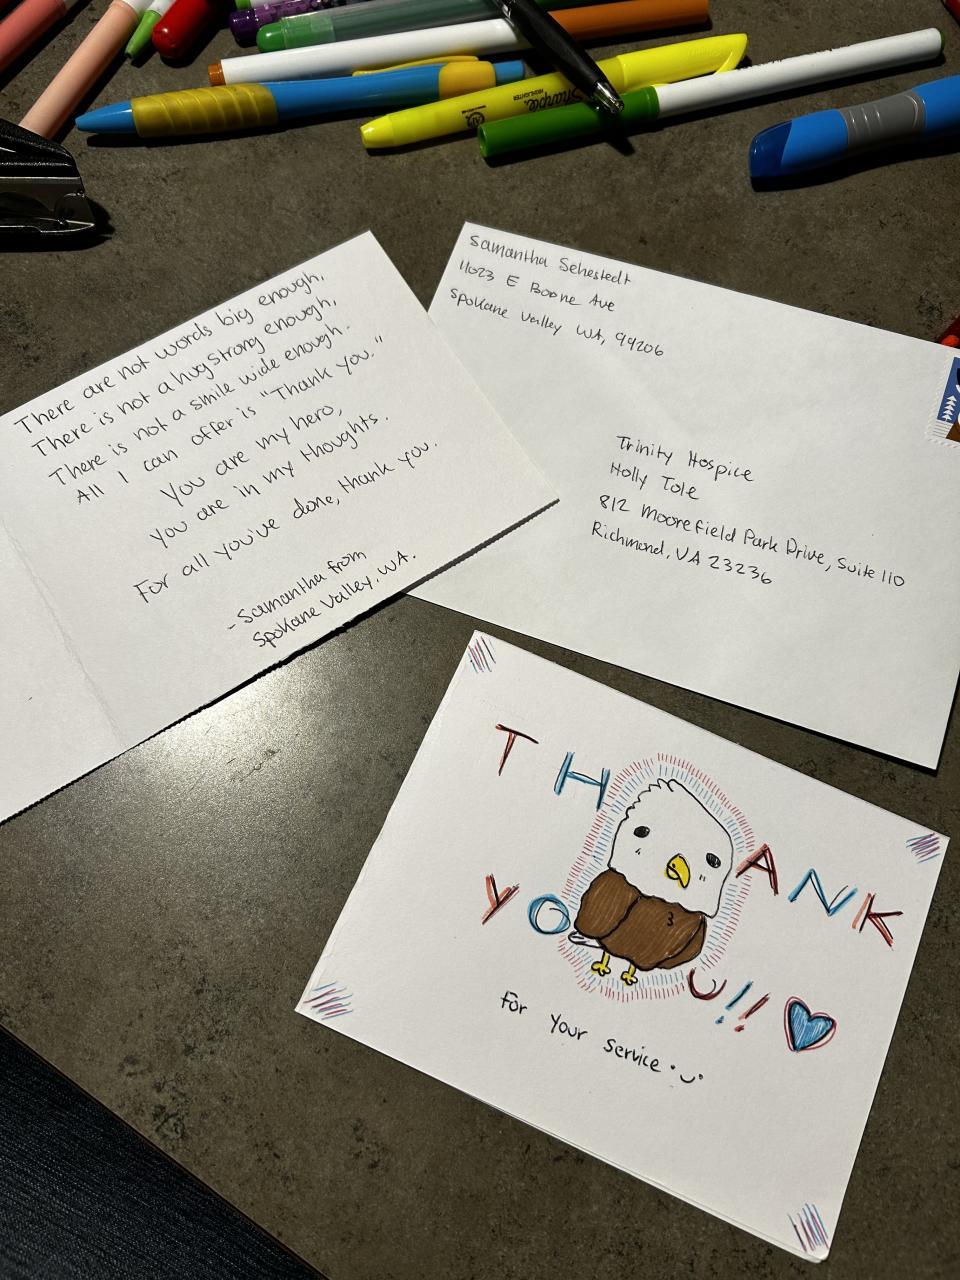 Sharpie
HIGHLIGHTER
There are not words big enough,
There is not a hug strong enough,
There is not a smile wide enough.
All I can offer is "Thank you."
You are my hero,
You are in my thoughts.
For all you've done, thank you.
-Samantha from
Spokane Valley, WA.
Samantha Sehestedt
11023 E Boone Ave
Spokane Valley WA, 99206
Trinity Hospice
Holly Tole
812 Moorefield Park Drive, Suite 110
Richmond, VA 23236
THANK
YOU!!
For Your Service